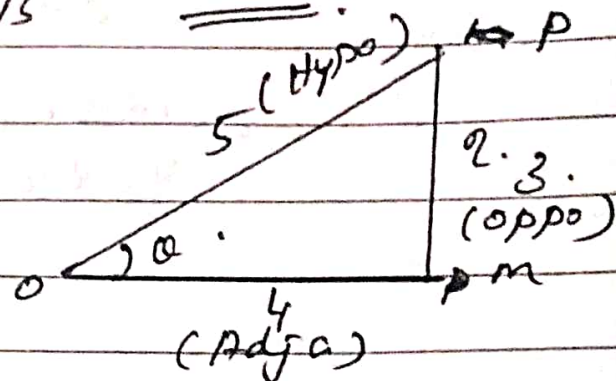 5 (Hypo)
P
2. 3.
(oppo)
θ
O
M
4
(Adja)